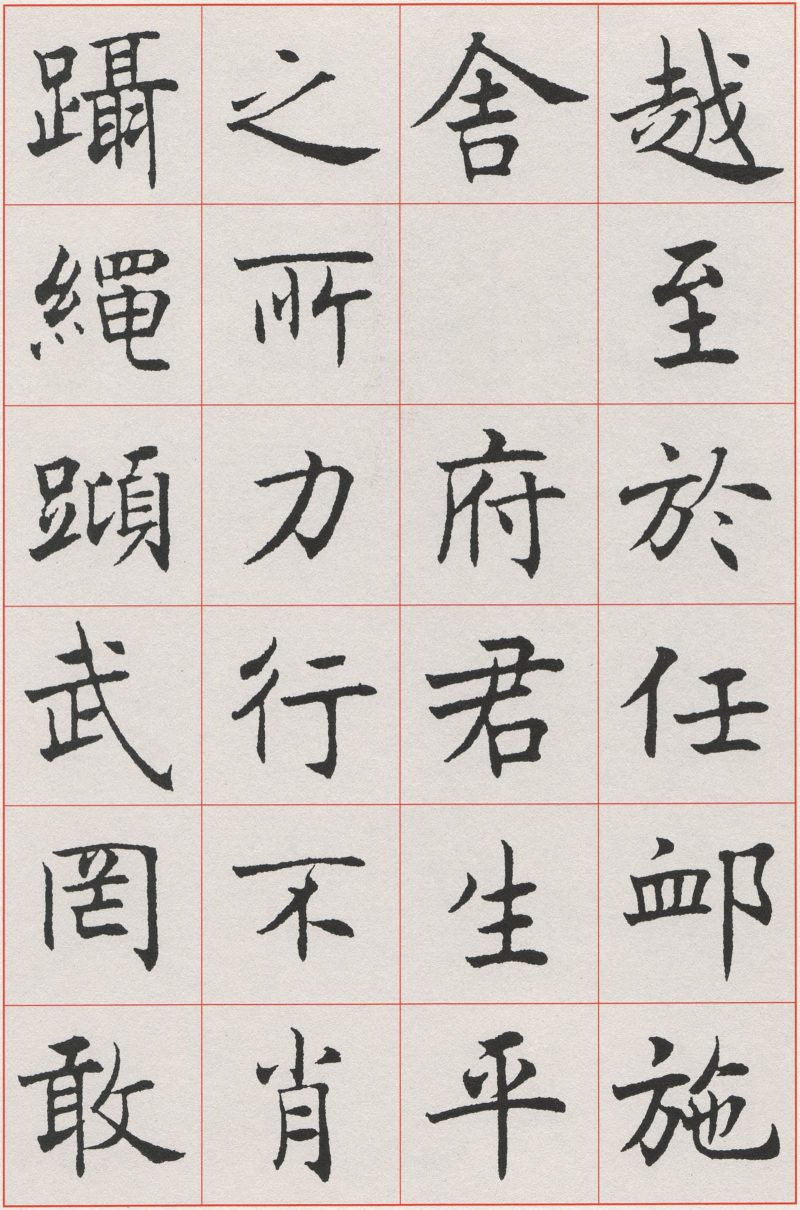 越至於任卹施
舍 府君生平
之所力行不肖
躡繩蹞武罔敢